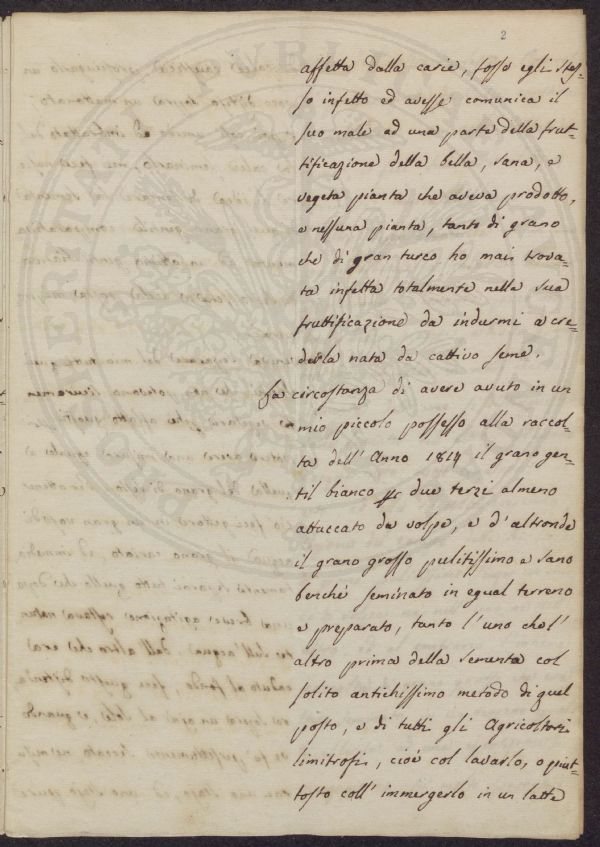 2
affetta dalla carie, fosse egli stes=
so infetto ed avesse comunica il
suo male ad una parte della frut=
tificazione della bella, sana, e
vegeta pianta che aveva prodotto,
e nessuna pianta, tanto di grano
che di gran turco ho mai trova=
ta infetta totalmente nella sua
fruttificazione da indurmi a cre
derla nata da cattivo seme.
La circostanza di avere avuto in un
mio piccolo possesso alla raccol=
ta dell' Anno 1814 il grano gen=
til bianco per due terzi almeno
attaccato da volpe, e d'altronde
il grano grosso pulitissimo e sano
benchè seminato in egual terreno
e preparato, tanto l'uno che l'
altro prima della sementa col
solito antichissimo metodo di quel
posto, e di tutti gli Agricoltori
limitrofi, cioè col lavarlo, o piut=
tosto coll' immergerlo in un latte